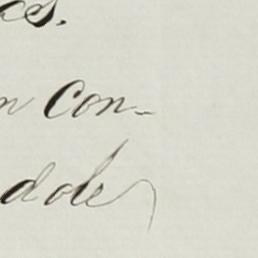 es.
n Con-
dole